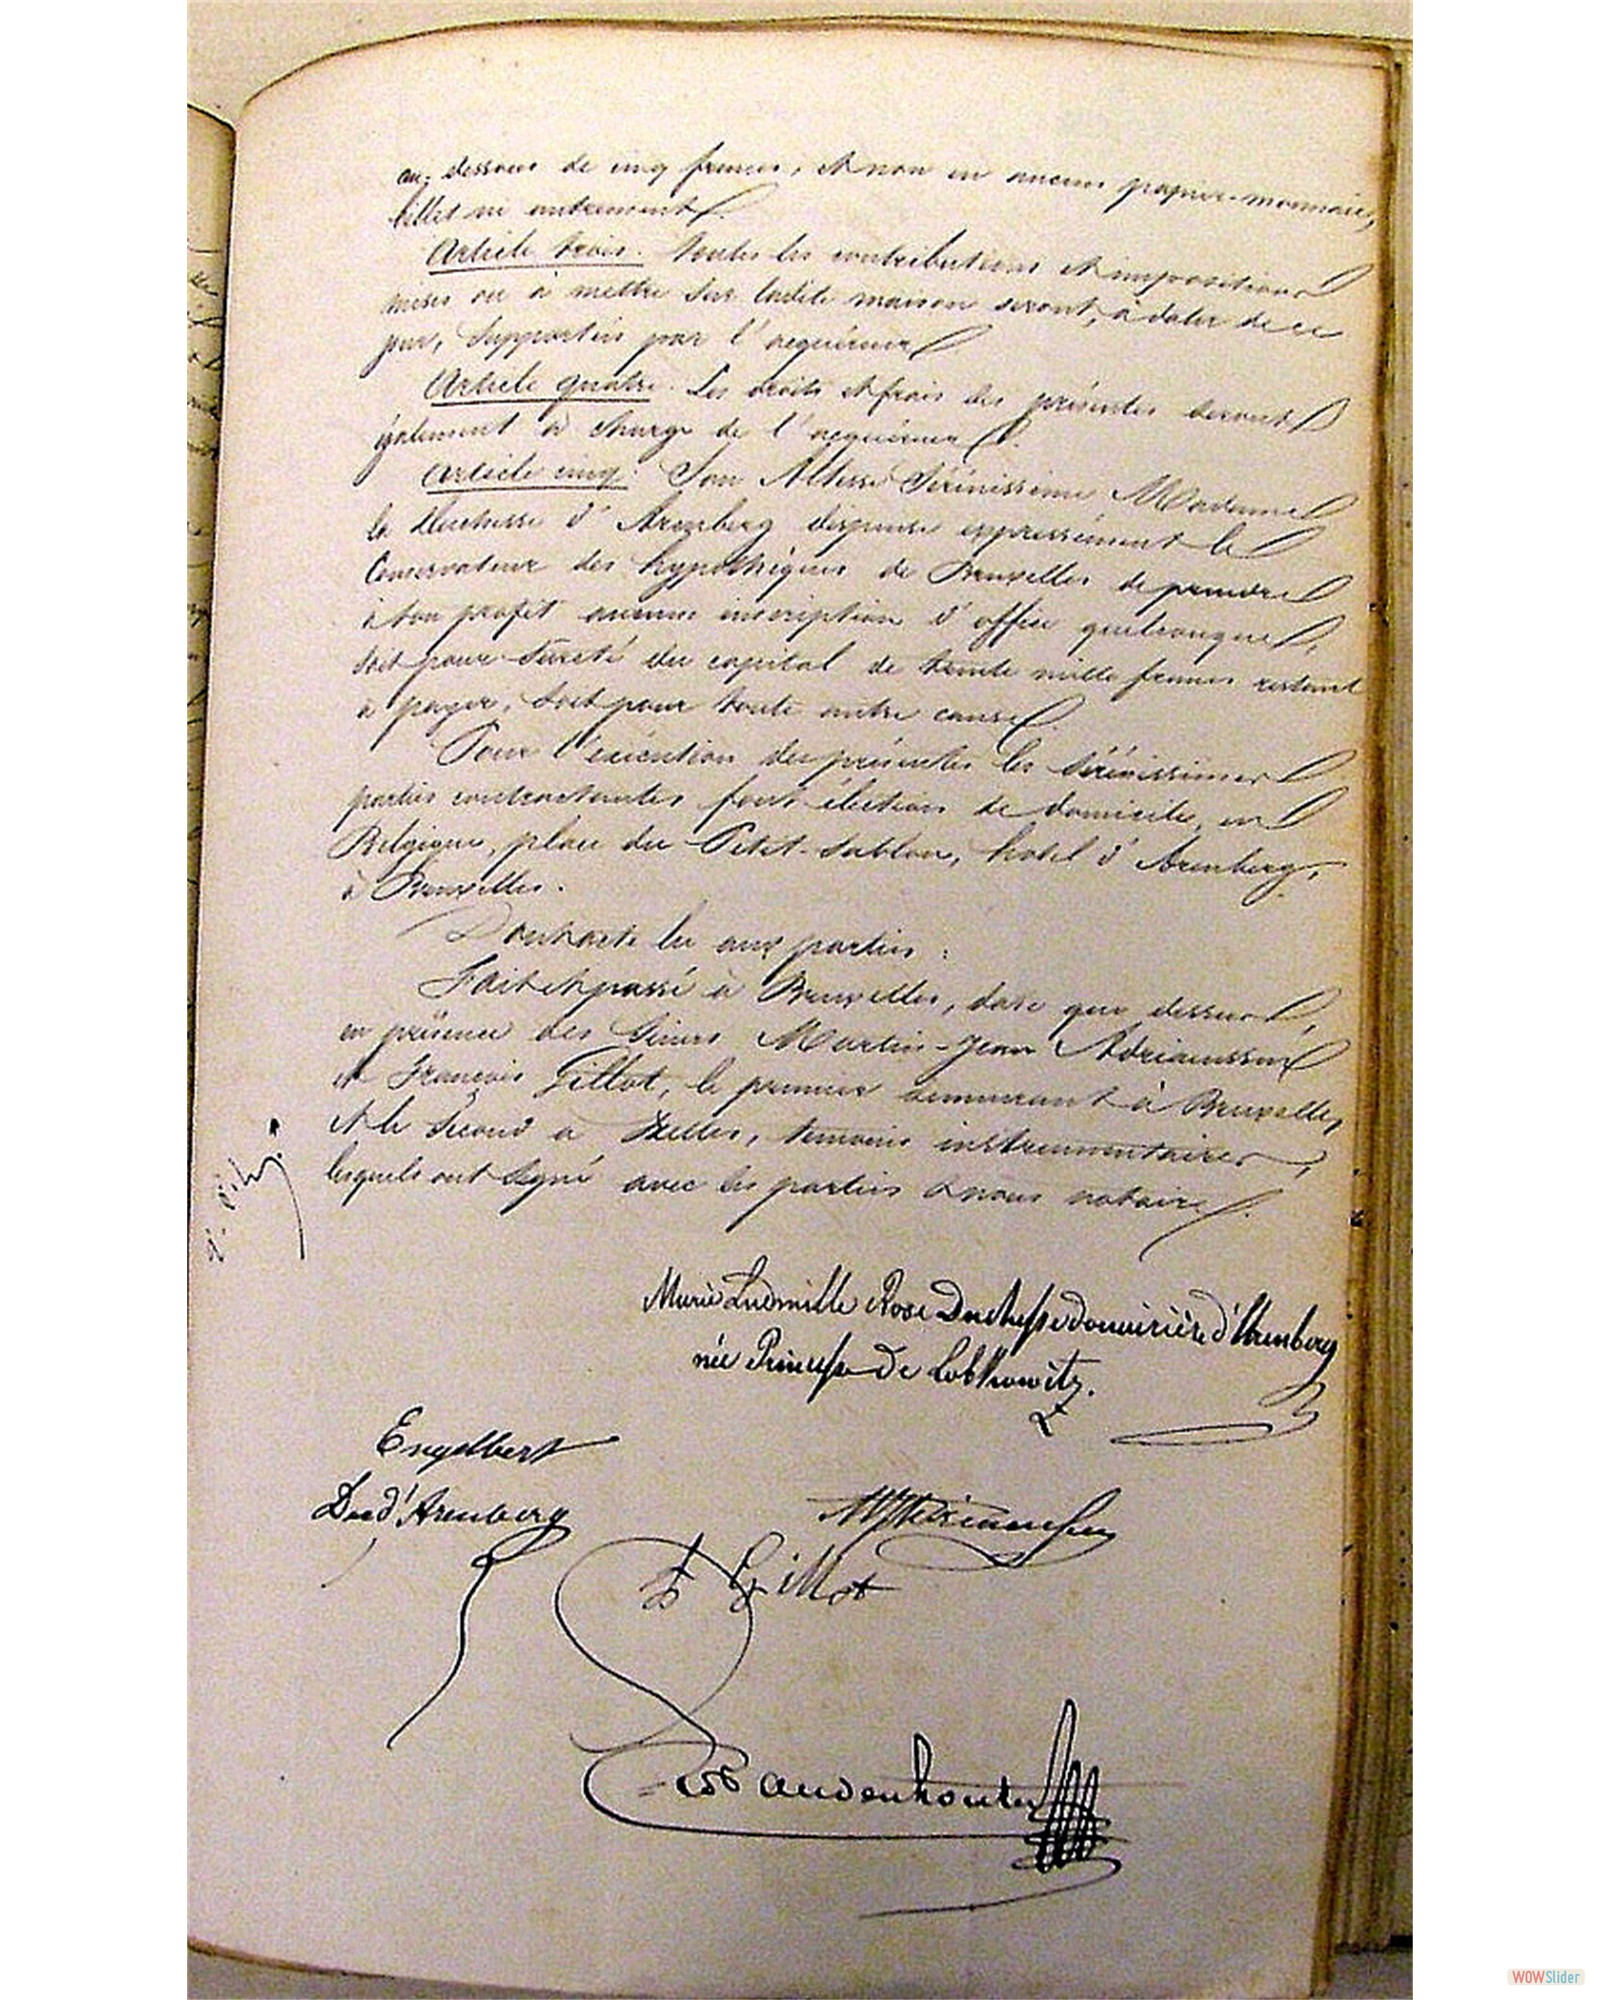 au-dessous de cinq francs, et non en aucun papier-monnaie,
billet ni autrement.
Article trois. Toutes les contributions et impositions
mises ou à mettre sur ladite maison seront, à dater de ce
jour, supportées par l'acquéreur.
Article quatre. Les droits et frais des présentes seront
également à charge de l'acquéreur.
Article cinq: Son Altesse Sérénissime Madame
la Duchesse d'Arenberg dispense expressément le
Conservateur des hypothèques de Bruxelles de prendre
à son profit aucune inscription d'office quelconque,
soit pour sûreté du capital de trente mille francs restant
à payer, soit pour toute autre cause.
Pour l'exécution des présentes les sérénissimes
parties contractantes font élection de domicile, en
Belgique, place du Petit-Sablon, hôtel d'Arenberg,
à Bruxelles.
Dont acte lu aux parties:
Fait et passé à Bruxelles, date que dessus,
en présence des Sieurs Martin-Jean Adriaenssens
et François Gillot, le premier demeurant à Bruxelles,
et le second à Ixelles, témoins instrumentaires,
lesquels ont signé avec les parties et nous notaire.
Marie Ludmille Rose Duchesse douairière d'Arenberg
née Princesse de Lobkowitz.
Engelbert
Duc d'Arenberg
F Gillot
Vandenhouten
WOWSlider